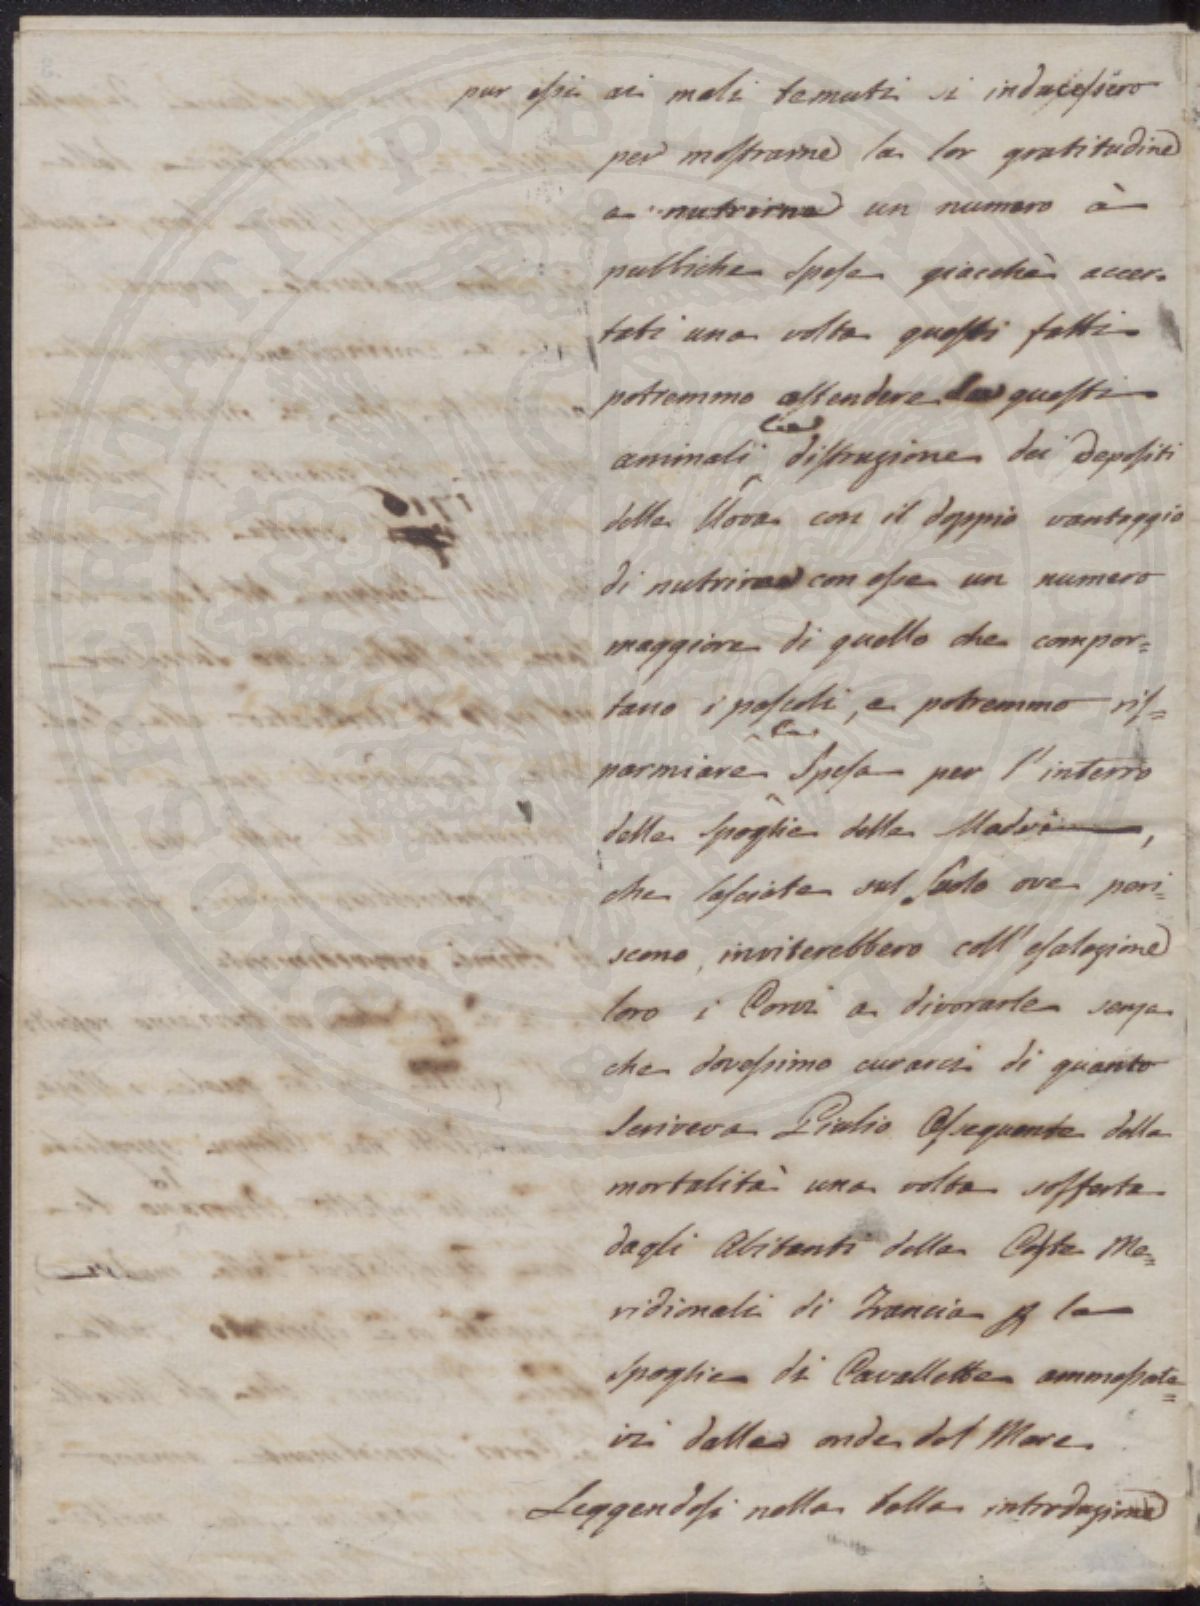 pur essi ai mali temuti si inducessero
per mostrarne la lor gratitudine
a nutrirne un numero à
pubbliche spese giacchè accer-
tati una volta questi fatti
potremmo attendere da questi
animali la distruzione dei depositi
delle Uova con il doppio vantaggio
di nutrirne con esse un numero
maggiore di quello che compor=
tano i pascoli, e potremmo ris=
parmiare la Spesa per l'interro
delle spoglie delle Madri,
che lasciate sul suolo ove peri-
scono, inviterebbero coll'esalazione
loro i Corvi a divorarle senza
che dovessimo curarci di quanto
scriveva Giulio Ossequente della
mortalità una volta sofferta
dagli Abitanti delle Coste Me=
ridionali di Francia p le
spoglie di Cavallette ammassate=
vi dalle onde del Mare.
Leggendosi nella bella introduzione
1716